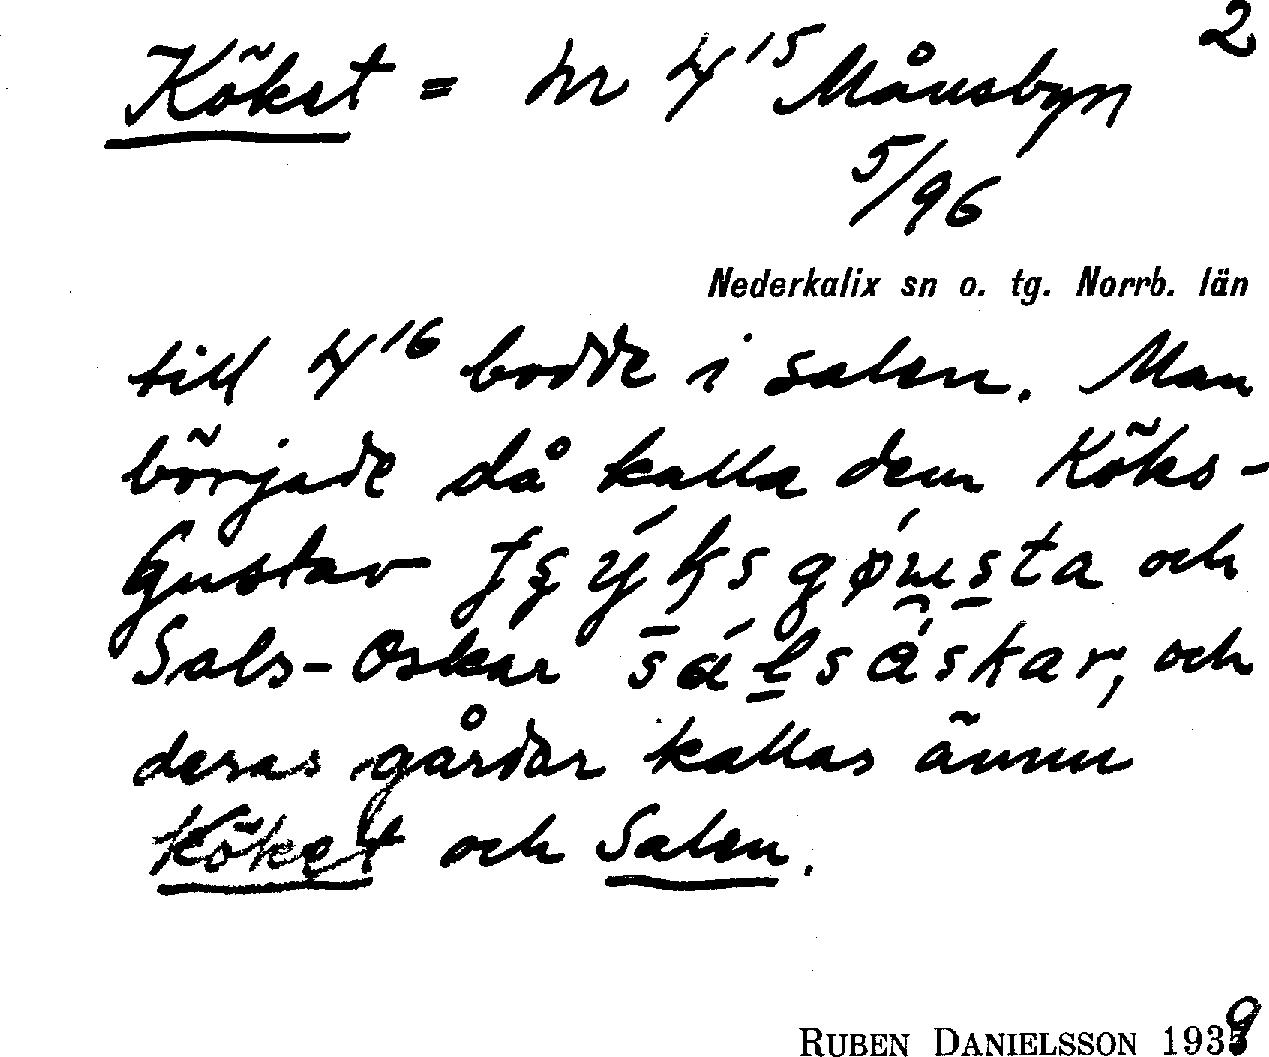 2
Köket = nr 4¹⁵ Månsbyn
5/96
Nederkalix sn o. tg. Norrb. län
till 4¹⁶ bodde i salen. Man
började då kalla dem Köks-
Gustav och
Sals-Oskar och
deras gårdar kallas ännu
Köket och Salen.
RUBEN DANIELSSON 1939